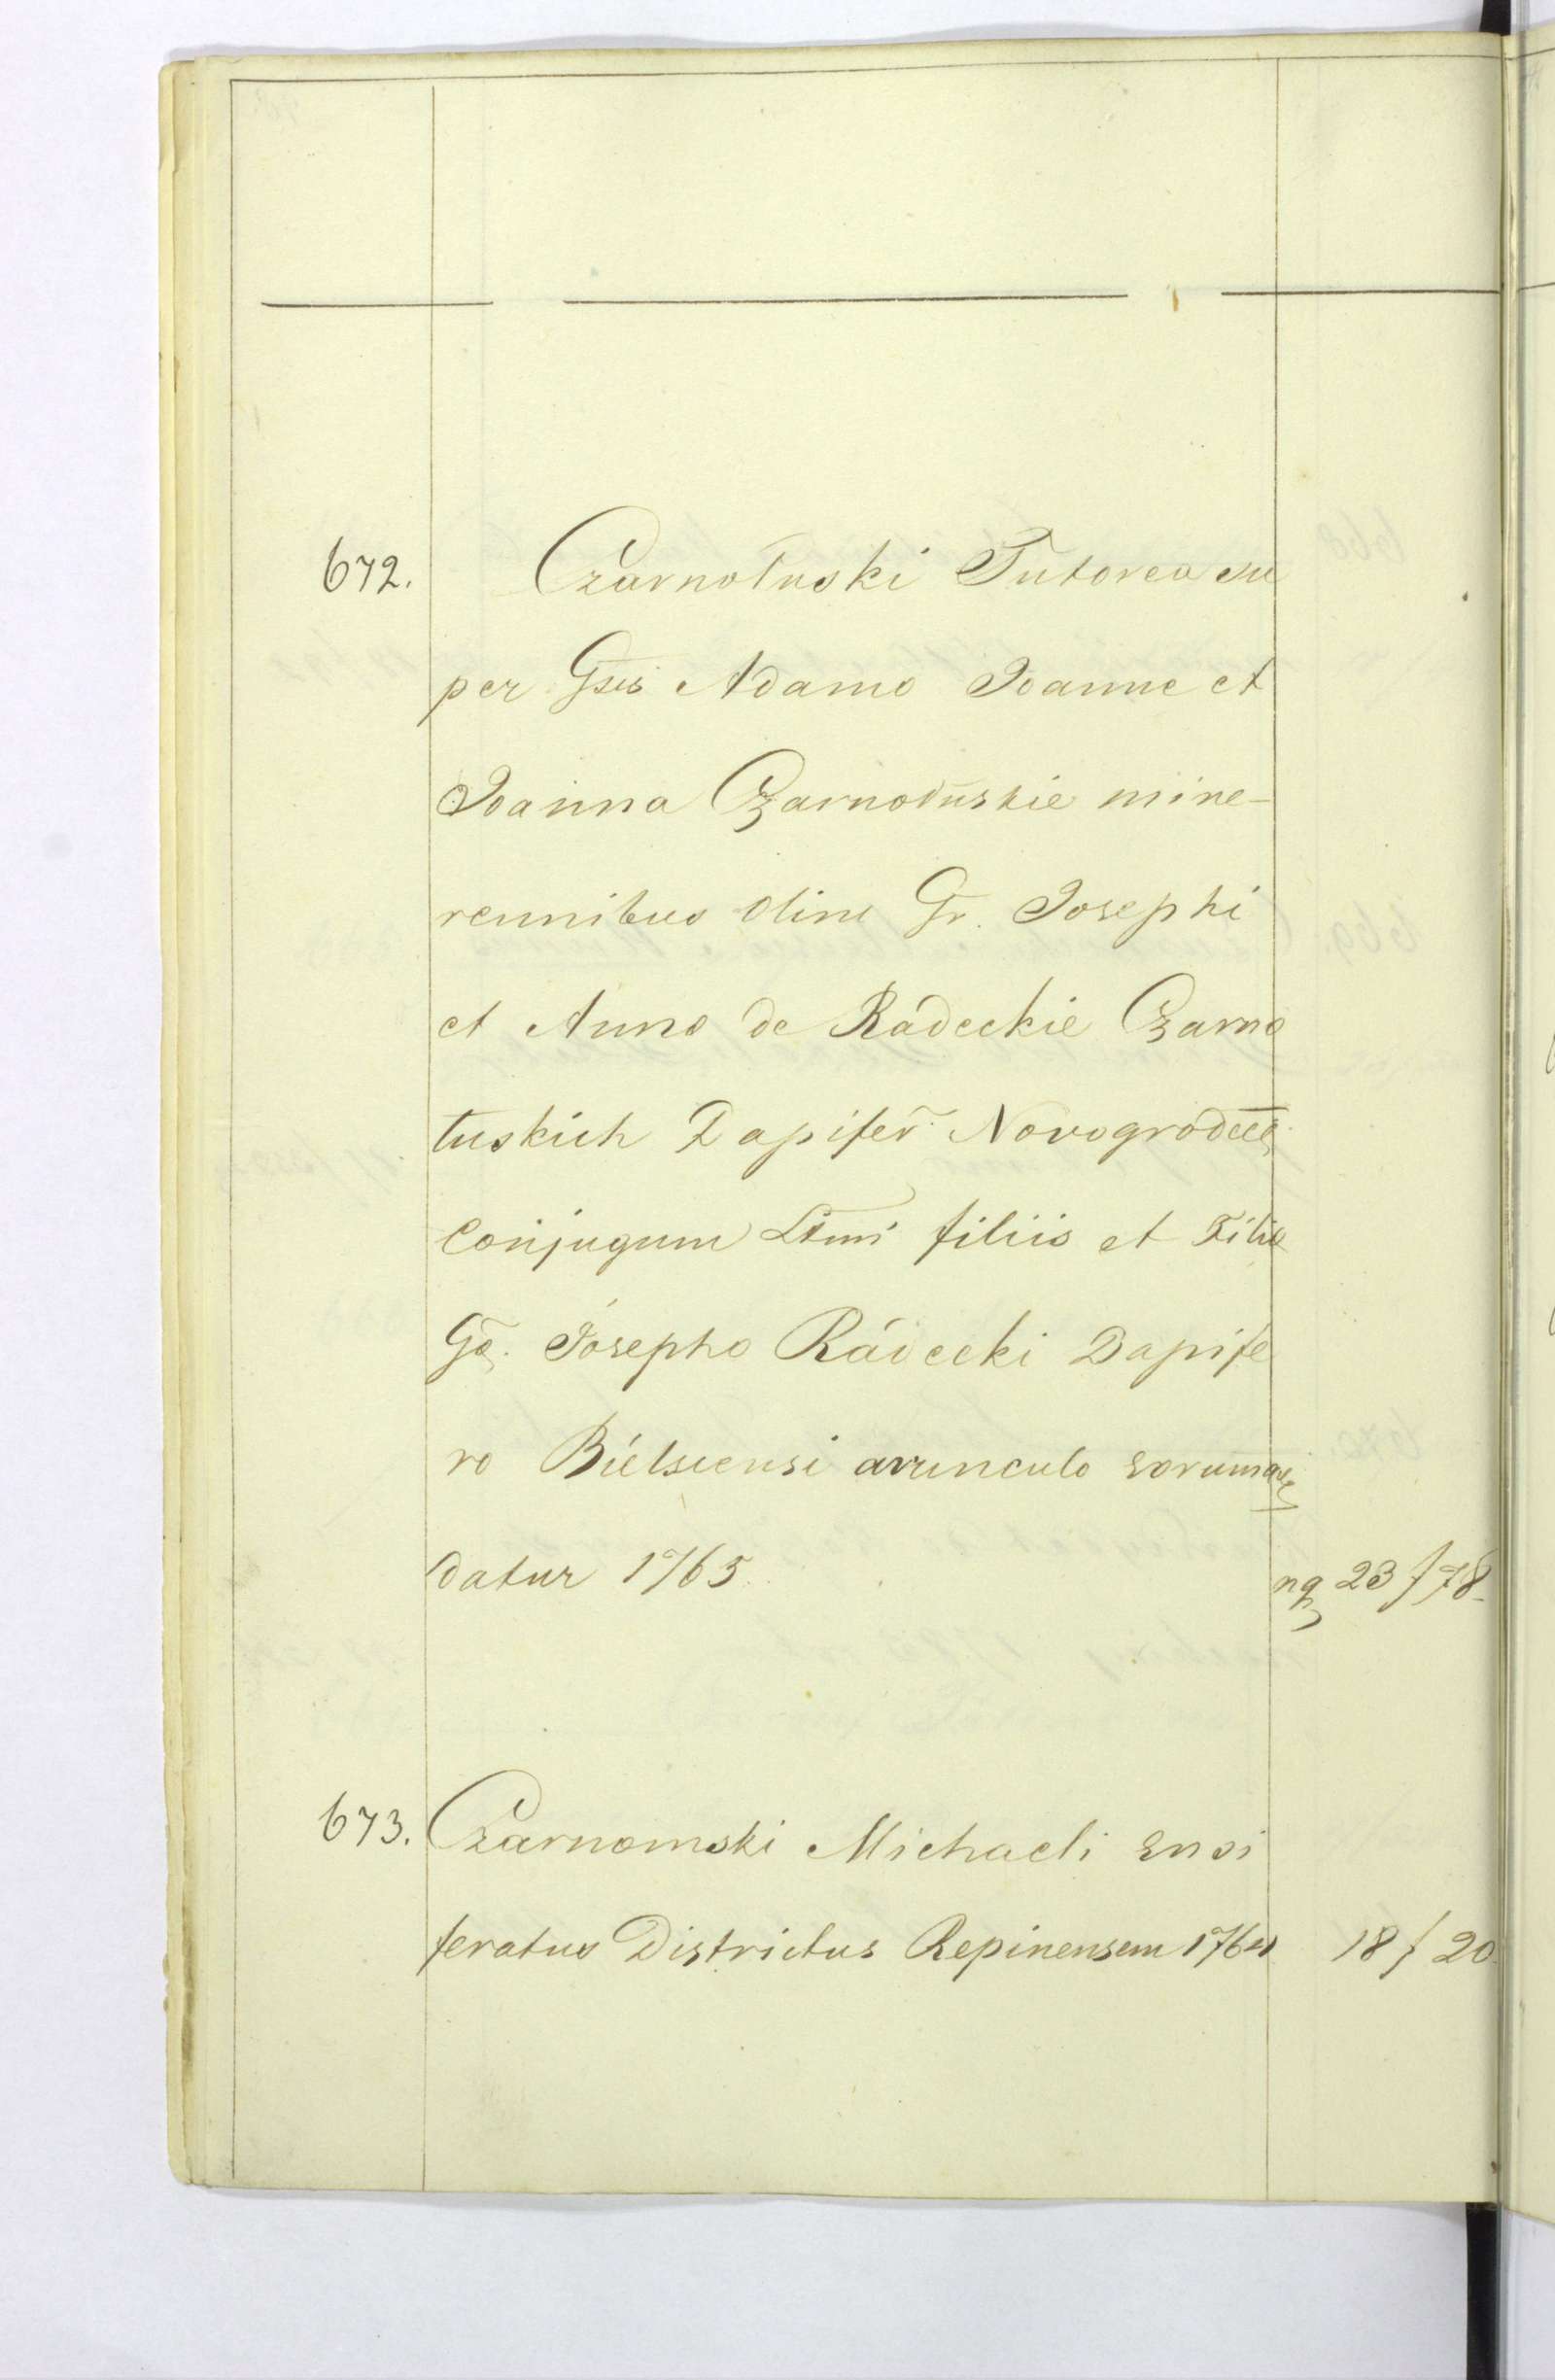 672. Czarnotuski Tutorea su
per Gsis Adamo Joanne et
Joanna Czarnotuskie mine-
rennibus olim Gr. Josephi
et Anno de Radeckie Czarno
tuskich Dapifer Novogrodecę
Conjugum Ltmi filiis et Filio
Go. Josepho Radecki Dapife
ro Bielscensi avunculo eorumq
datur 1765 nq 23 f 78-
673. Czarnomski Michaeli Ensi
feratus Districtus Repinensem 1764 18 f 20